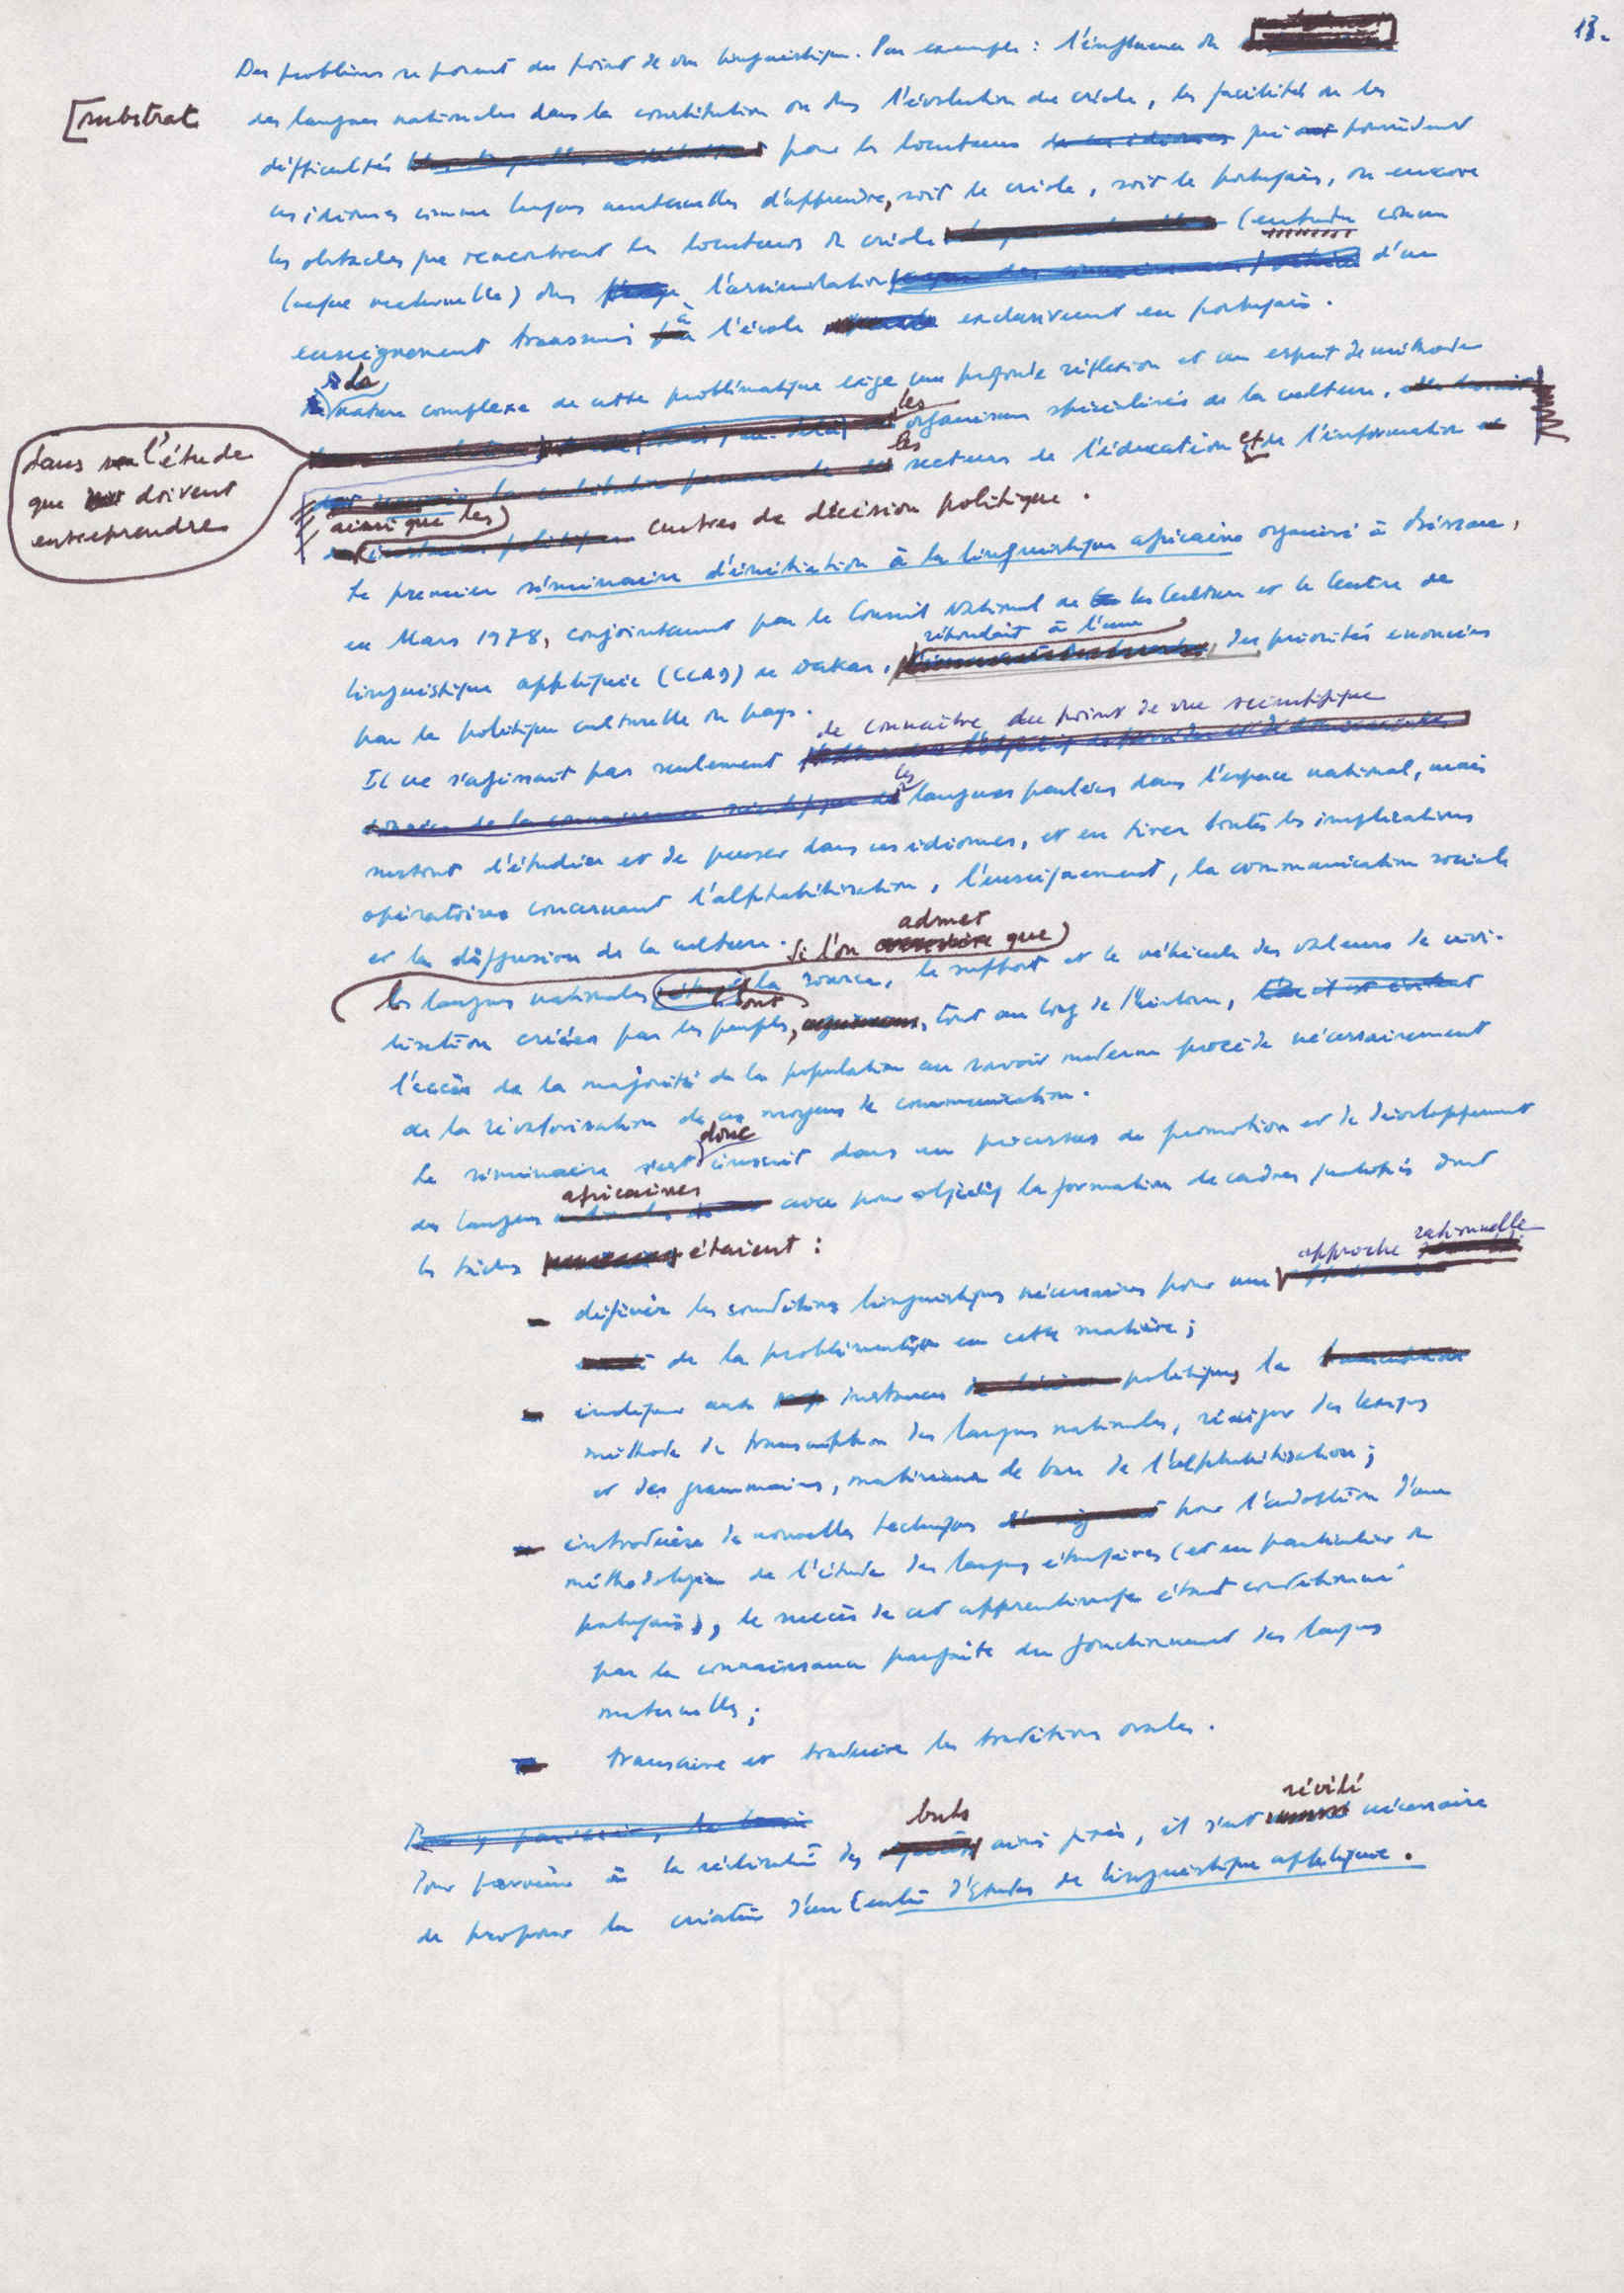 13.
Des problèmes se posent du point de vue linguistique. Par exemple : l'influence du
[substrat
des langues nationales dans la constitution ou dans l'évolution du créole, les facilités ou les
difficultés pour les locuteurs qui possèdent
ces idiomes comme langues maternelles d'apprendre, soit le créole, soit le portugais, ou encore
les obstacles que rencontrent les locuteurs du créole (entendu comme
langue maternelle) dans l'assimilation d'un
enseignement transmis à l'école exclusivement en portugais.
La nature complexe de cette problématique exige une profonde réflexion et un esprit de méthode
dans l'étude
que doivent
entreprendre
les organismes spécialisés de la culture,
les secteurs de l'éducation et de l'information
ainsi que les centres de décision politique.
Le premier séminaire d'initiation à la linguistique africaine organisé à Bissau,
en Mars 1978, conjointement par le Conseil National de la Culture et le Centre de
linguistique appliquée (CLAD) de Dakar, répondait à l'une des priorités énoncées
par la politique culturelle du pays.
Il ne s'agissait pas seulement de connaître du point de vue scientifique
les langues parlées dans l'espace national, mais
surtout d'étudier et de penser dans ces idiomes, et en tirer toutes les implications
opératoires concernant l'alphabétisation, l'enseignement, la communication sociale
et la diffusion de la culture. Si l'on admet que
les langues nationales sont la source, le support et le véhicule des valeurs de civi-
lisation créées par les peuples, tout au long de l'histoire,
l'accès de la majorité de la population au savoir moderne procède nécessairement
de la revalorisation de ces moyens de communication.
Le séminaire s'est donc inscrit dans un processus de promotion et de développement
des langues africaines avec pour objectif la formation de cadres dont
les tâches étaient :
- définir les conditions linguistiques nécessaires pour une approche rationnelle
de la problématique en cette matière ;
- indiquer aux instances politiques la
méthode de transcription des langues nationales, rédiger des lexiques
et des grammaires, matériaux de base de l'alphabétisation ;
- introduire de nouvelles techniques pour l'adoption d'une
méthodologie de l'étude des langues étrangères (et en particulier du
portugais), le succès de cet apprentissage étant conditionné
par la connaissance parfaite du fonctionnement des langues
maternelles ;
- transcrire et traduire les traditions orales.
Pour parvenir à la réalisation des buts ainsi fixés, il s'est révélé nécessaire
de proposer la création d'un Centre d'Etudes de linguistique appliquée.